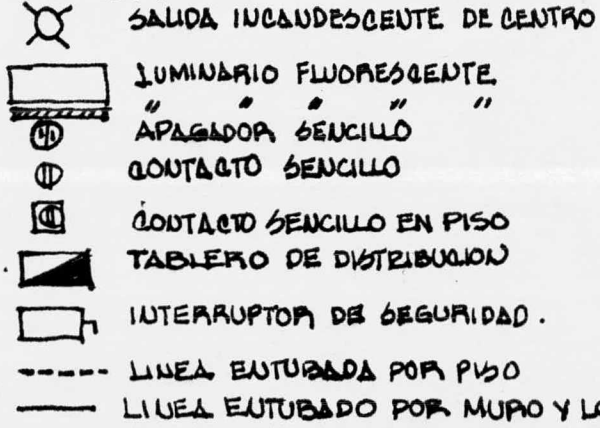 SALIDA INCANDESCENTE DE CENTRO
LUMINARIO FLUORESCENTE
" " " " "
APAGADOR SENCILLO
CONTACTO SENCILLO
CONTACTO SENCILLO EN PISO
TABLERO DE DISTRIBUCION
INTERRUPTOR DE SEGURIDAD.
LINEA ENTUBADA POR PISO
LINEA ENTUBADO POR MURO Y LO